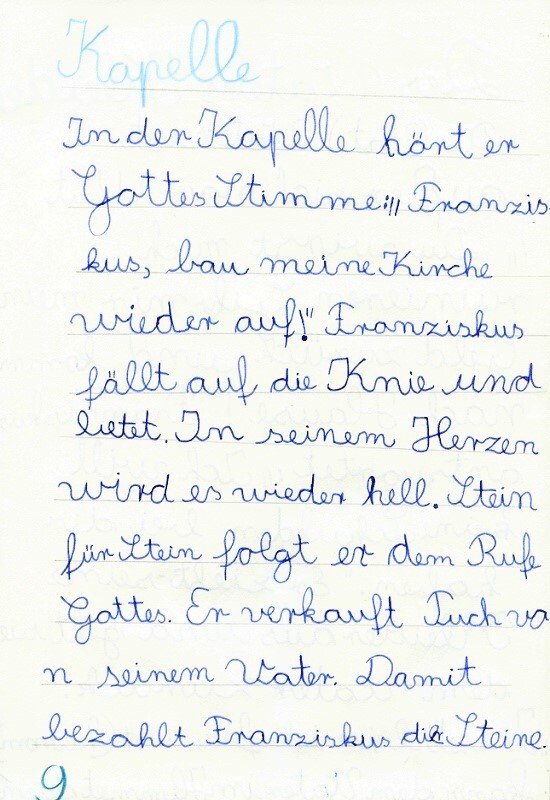 Kapelle
In der Kapelle hört er
Gottes Stimme: „Franzis-
kus, bau meine Kirche
wieder auf!" Franziskus
fällt auf die Knie und
betet. In seinem Herzen
wird es wieder hell. Stein
für Stein folgt er dem Rufe
Gottes. Er verkauft Tuch vo
n seinem Vater. Damit
bezahlt Franziskus die Steine.
9